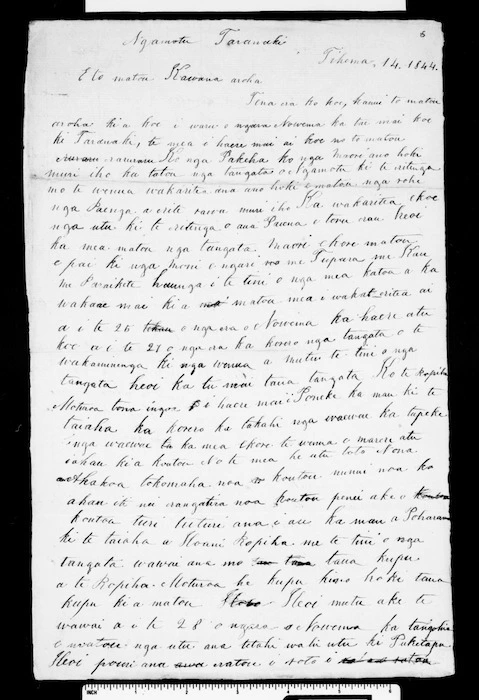 6
Ngamotu Taranaki
Tihema, 14. 1844.
E to matou Kawana aroha
Tena ra ko koe, ka nui to matou
aroha ki a koe i waru o Nowema ka tae mai koe
ki Taranaki, te mea i haere mai ai koe no to matou
raruraru Ko nga Pakeha ko nga Maori ano hoki
muri iho ka tatou nga tangata o Ngamotu ki te ritenga
mo te wenua wakaritea ana ano hoki e matou nga rohi
nga Paenga e rite rawa muri iho Ka wakaritea e koe
nga utu ki te ritenga o ana Pauna e toru rau heoi
ka mea matou nga tangata Maori ekore matou
e pai ki nga moni e ngari me Pupara me Kau
me Paraikete haunga i te tini o nga mea katoa a ka
wakaae mai ki a matou mea e wakaritea ai
a i te 26 o nga ra o Nowema ka haere atu
koe a i te 27 o nga ra ka korero nga tangata o te
wakaminenga ki nga wenua a mutu te tini o nga
tangata heoi ka tu mai taua tangata Ko te Ropiha
Moturoa tona ingoa i haere mai i Poneke ka mau ki te
taiaha ka korero ka takahi nga waewae ka tupeke
nga waewae ka mea ekore te wenua e marere atu
i ahau ki a koutou No te mea he utu toto Nona
Ahakoa tokomaha noa koutou nunui noa ko
ahau iti nei rangatira noa koutou penei ake o
koutou turi tuturi ana e au ka mau a Poharama
ki te taiaha a Honui Ropiha me te tini o nga
tangata wawai ana mo taua kupu
a te Ropiha Moturoa he kupu kino hoki taua
kupu ki a matou Heoi mutu ake te
wawai a i te 28 o nga ra o Nowema ka tangohia
e ratou nga utu ana tetahi wahi utu ki Puketapu
Heoi pouri ana ratou i roto o
INCH 1 2 3 4